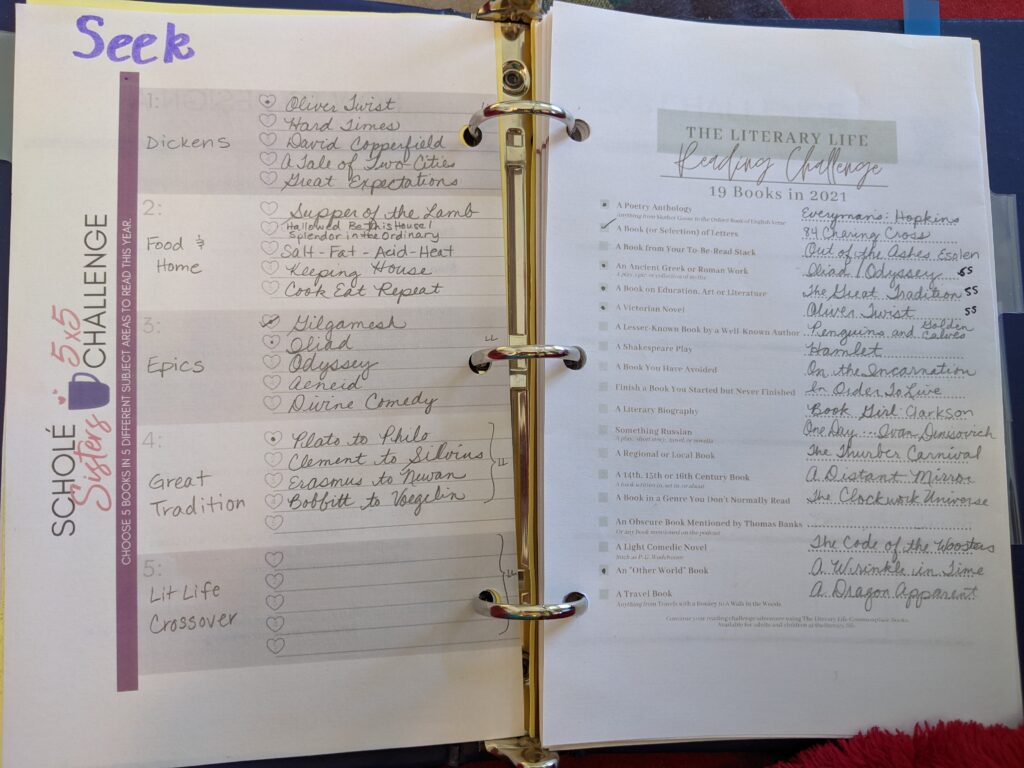 Seek
SCHOLÉ
Sisters 5x5
CHALLENGE
CHOOSE 5 BOOKS IN 5 DIFFERENT SUBJECT AREAS TO READ THIS YEAR.
1:
Dickens
Oliver Twist
Hard Times
David Copperfield
A Tale of Two Cities
Great Expectations
2:
Food &
Home
Supper of the Lamb
Hallowed Be This House/
Splendor in the Ordinary
Salt - Fat - Acid - Heat
Keeping House
Cook Eat Repeat
3:
Epics
Gilgamesh
Iliad
LL
Odyssey
Aeneid
Divine Comedy
4:
Great
Tradition
Plato to Philo
Clement to Silvius
Erasmus to Newan
Bobbitt to Voegelin
LL
5:
Lit Life
Crossover
LL
THE LITERARY LIFE
Reading Challenge
19 Books in 2021
A Poetry Anthology Everyman's: Hopkins
Anything from Mother Goose to the Oxford Book of English Verse
A Book (or Selection) of Letters 84 Charing Cross
A Book from Your To-Be-Read Stack Out of the Ashes Esolen
An Ancient Greek or Roman Work Iliad/Odyssey SS
A play, epic, or collection of myths
A Book on Education, Art or Literature The Great Tradition SS
A Victorian Novel Oliver Twist SS
A Lesser-Known Book by a Well-Known Author Penguins and Golden Calves
A Shakespeare Play Hamlet
A Book You Have Avoided On the Incarnation
Finish a Book You Started but Never Finished In Order To Live
A Literary Biography Book Girl Clarkson
Something Russian One Day .... Ivan Denisovich
A play, short story, novel, or novella
A Regional or Local Book The Thurber Carnival
A 14th, 15th or 16th Century Book A Distant Mirror
A book written in, set in, or about
A Book in a Genre You Don't Normally Read The Clockwork Universe
An Obscure Book Mentioned by Thomas Banks
Or any book mentioned on the podcast
A Light Comedic Novel The Code of the Woosters
Such as P.G. Wodehouse
An "Other World" Book A Wrinkle in Time
A Travel Book A Dragon Apparent
Anything from Travels with a Donkey to A Walk in the Woods
Continue your reading challenge adventure using The Literary Life Commonplace Books.
Available for adults and children at theliterary.life.